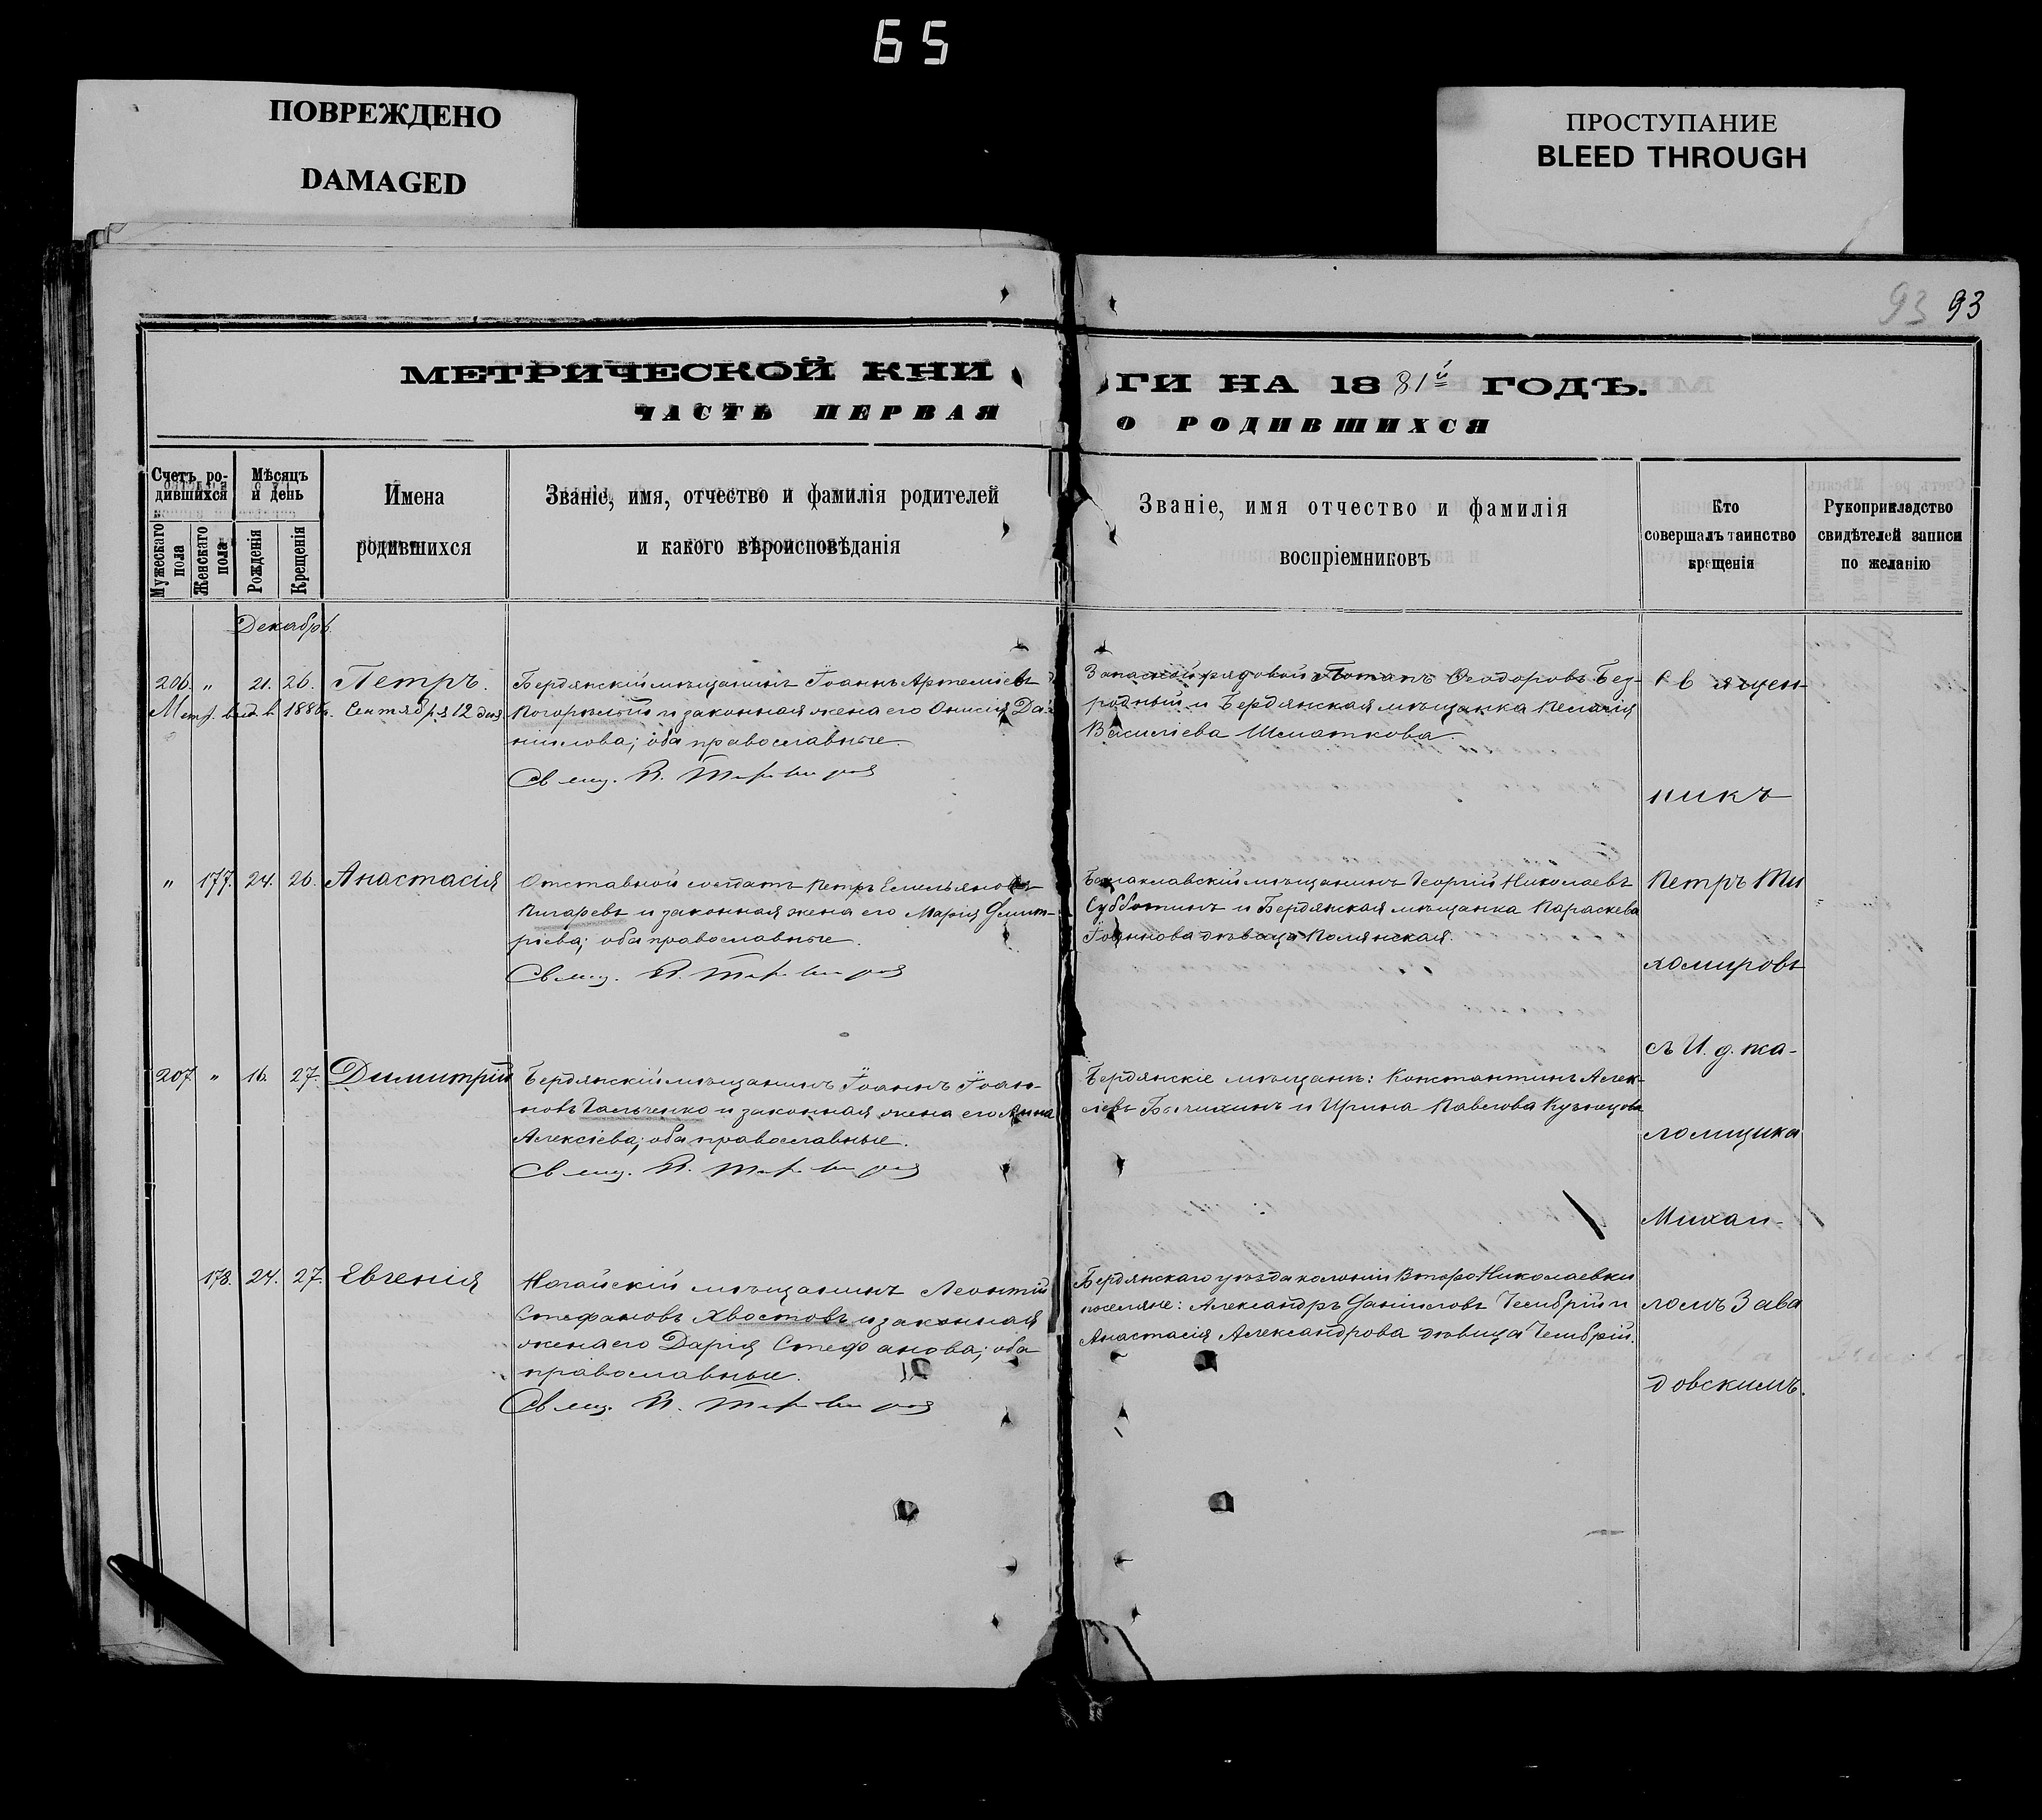 65
ПОВРЕЖДЕНО
DAMAGED
ПРОСТУПАНИЕ
BLEED THROUGH
93 93
МЕТРИЧЕСКОЙ КНИ
ГИ НА 1881й ГОДЪ.
ЧАСТЬ ПЕРВАЯ
О РОДИВШИХСЯ
Счетъ ро-
дившихся
Мужескаго пола
Женскаго пола
Мѣсяцъ
и день
Рожденія
Крещенія
Имена
родившихся
Званіе, имя, отчество и фамилія родителей
и какого вѣроисповѣданія
Званіе, имя отчество и фамилія
воспріемниковъ
Кто
совершалъ таинство
крещенія
Рукоприкладство
свидѣтелей записи
по желанію
Декабрь.
206. " 21. 26. Петръ.
Метр. выд. в. 1886. Сентября 12 дня
Бердянскій мѣщанинъ Іоаннъ Артеміевъ
и законная жена его Онисія Да-
нилова; оба православные.
Свящ. П.
Запасной рядовой Потапъ Ѳеодоровъ Без-
родный и Бердянская мѣщанка Пелагія
Василіева Шматкова.
" 177. 24. 26. Анастасія
Отставной солдатъ Петръ Емельяновъ
Пигаревъ и законная жена его Марія Димит-
ріева; оба православные.
Свящ. П.
Балаклавскій мѣщанинъ Георгій Николаевъ
Субботинъ и Бердянская мѣщанка Параскева
Іоаннова дѣвица Полянская.
207 " 16. 27. Димитрій
Бердянскій мѣщанинъ Іоаннъ Іоан-
новъ Гальченко и законная жена его Анна
Алексіева; оба православные.
Свящ. П.
Бердянскіе мѣщане: Константинъ Алек-
сіевъ и Ирина Павлова Кузнецова
178. 24. 27. Евгенія
Ногайскій мѣщанинъ Леонтій
Стефановъ Хвостовъ и законная
жена его Дарія Стефанова; оба
православные.
Свящ. П.
Бердянскаго уѣзда колоніи Второ Николаевки
поселяне: Александръ Даніиловъ Чембрій и
Анастасія Александрова дѣвица Чембрій.
Священ-
никъ
Петръ Ти
хомировъ
съ И. д. пса-
ломщика
Михаи-
ломъ Зава
довскимъ.